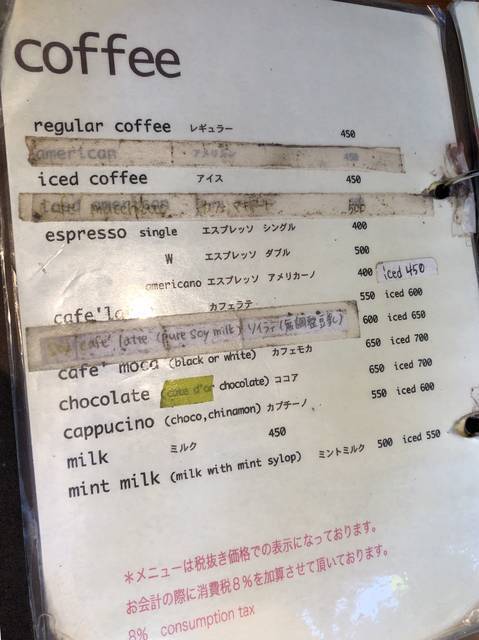 coffee
regular coffee レギュラー 450
american アメリカン 450
iced coffee アイス 450
iced american
espresso single エスプレッソ シングル 400
W エスプレッソ ダブル 500
americano エスプレッソ アメリカーノ 400 iced 450
cafe'la カフェラテ 550 iced 600
cafe' latte (pure soy milk) ソイラテ (無調整豆乳) 600 iced 650
cafe' moca (black or white) カフェモカ 650 iced 700
chocolate (cote d'or chocolate) ココア 650 iced 700
cappucino (choco,chinamon) カプチーノ 550 iced 600
milk ミルク 450
mint milk (milk with mint sylop) ミントミルク 500 iced 550
＊メニューは税抜き価格での表示になっております。
お会計の際に消費税8％を加算させて頂いております。
8% consumption tax